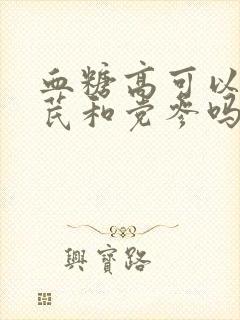 血糖高可以
芪和党参吗
興寶路